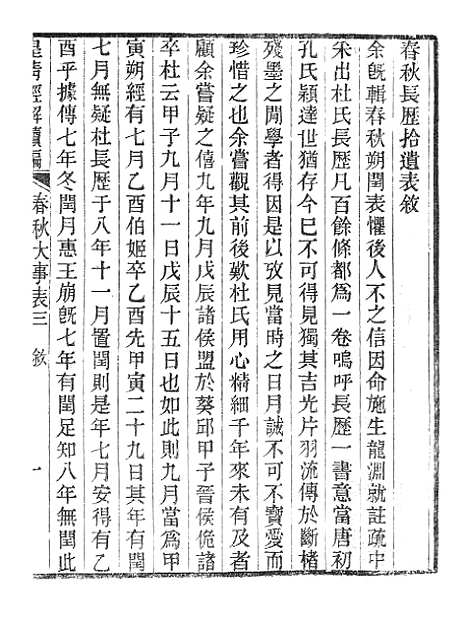 春秋長歷拾遺表敘
余旣輯春秋朔閏表懼後人不之信因命施生龍淵就註疏中
采出杜氏長歷凡百餘條都為一卷嗚呼長歷一書意當唐初
孔氏穎達世猶存今已不可得見獨其吉光片羽流傳於斷楮
殘墨之閒學者得因是以攷見當時之日月誠不可不寶愛而
珍惜之也余嘗觀其前後歎杜氏用心精細千年來未有及者
顧余嘗疑之僖九年九月戊辰諸侯盟於葵邱甲子晉侯佹諸
卒杜云甲子九月十一日戊辰十五日也如此則九月當爲甲
寅朔經有七月乙酉伯姬卒乙酉先甲寅二十九日其年有閏
七月無疑杜長歷于八年十一月置閏則是年七月安得有乙
酉乎據傳七年冬閏月惠王崩旣七年有閏足知八年無閏此
皇淸經解續編
春秋大事表三
敘
一